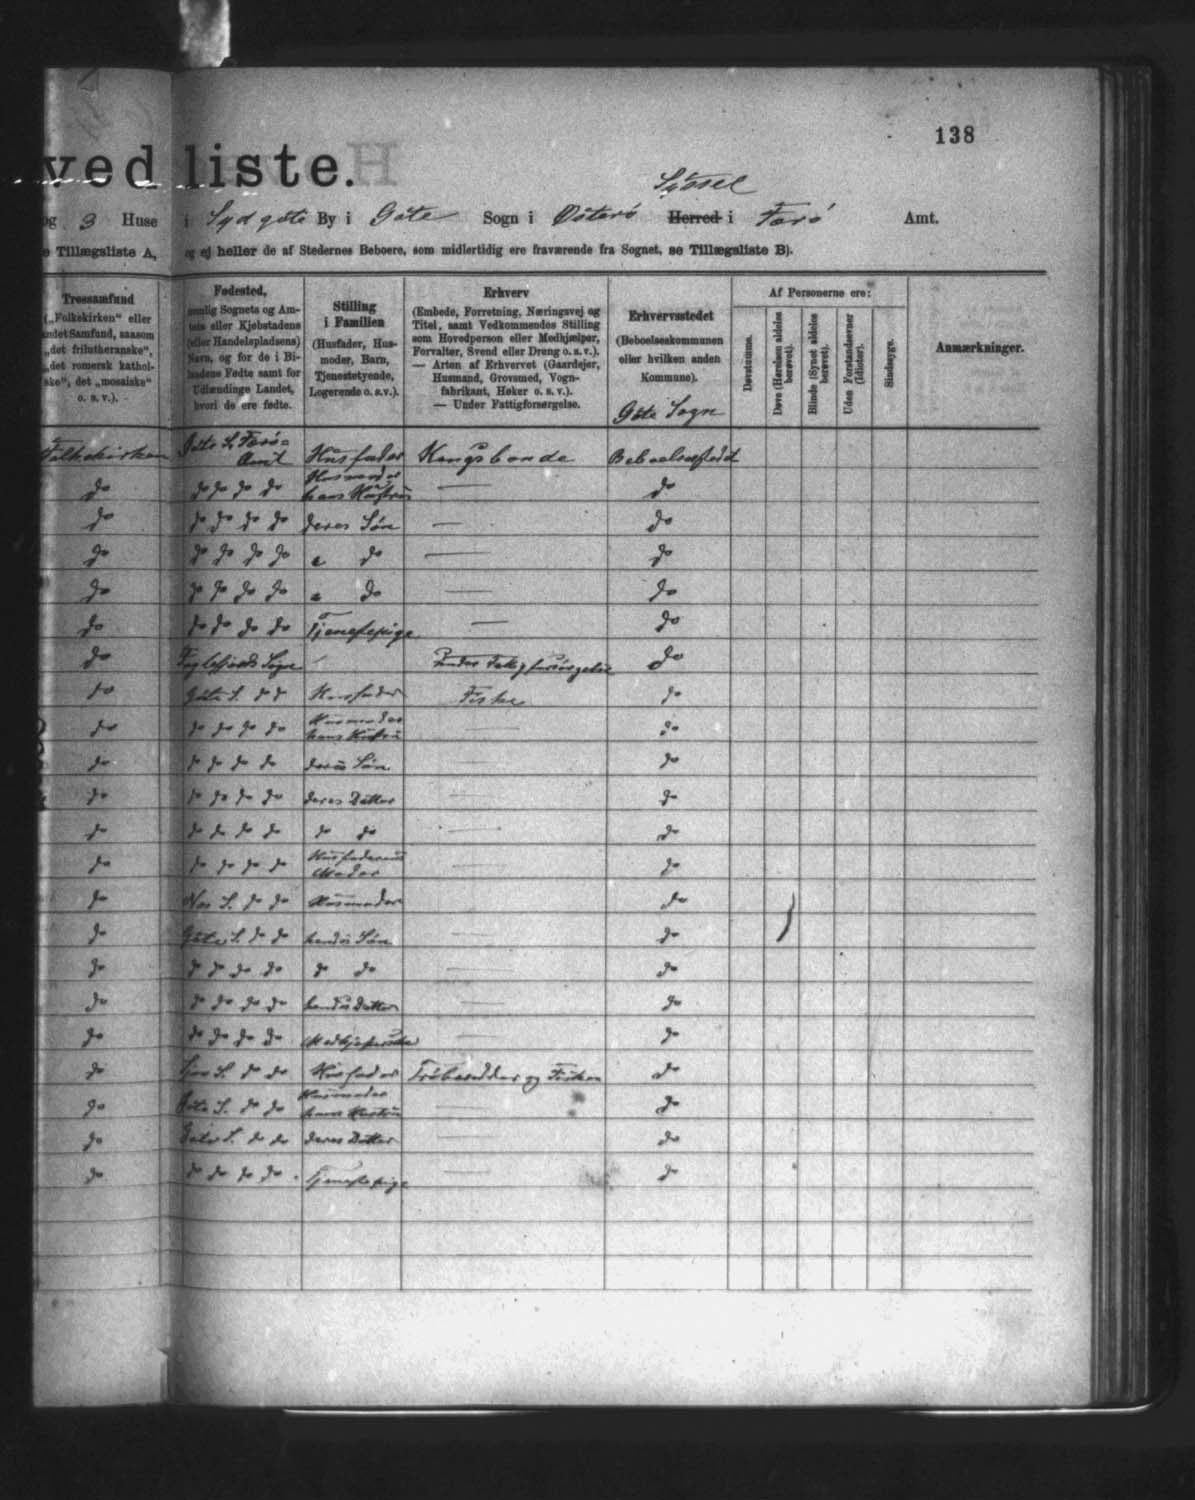 138
vedliste.
Syssel
og 3 Huse i Sydgöte By i Göte Sogn i Österö Herred i Færö Amt.
e Tillægsliste A, og ej heller de af Stedernes Beboere, som midlertidig ere fraværende fra Sognet, se Tillægsliste B).
Trossamfund
(„Folkekirken" eller
andet Samfund, saasom
„det frilutheranske",
„det romersk kathol-
ske", det „mosaiske"
o. s. v.).
Fødested,
nemlig Sognets og Am-
tets eller Kjøbstadens
(eller Handelspladsens)
Navn, og for de i Bi-
landene Fødte samt for
Udlændinge Landet,
hvori de ere fødte.
Stilling
i Familien
(Husfader, Hus-
moder, Barn,
Tjenestetyende,
Logerende o. s. v.).
Erhverv
(Embede, Forretning, Næringsvej og
Titel, samt Vedkommendes Stilling
som Hovedperson eller Medhjælper,
Forvalter, Svend eller Dreng o. s. v.).
— Arten af Erhvervet (Gaardejer,
Husmand, Grovsmed, Vogn-
fabrikant, Høker o. s. v.).
— Under Fattigforsørgelse.
Erhvervsstedet
(Beboelseskommunen
eller hvilken anden
Kommune).
Göte Sogn
Af Personerne ere:
Døvstumme.
Døve (Hørelsen aldeles
berøvet).
Blinde (Synet aldeles
berøvet).
Uden Forstandsevner
(Idioter).
Sindssyge.
Anmærkninger.
Folkekirken Göte S. Færö Amt Husfader Kongsbonde Beboelsessted
do do do do do Husmoder hans Hustru — do
do do do do do deres Søn — do
do do do do do " do — do
do do do do do " do — do
do do do do do Tjenestepige — do
do Fuglefjords Sogn do
do Göte S. do do Husfader Fisker do
do do do do do Husmoder hans Hustru — do
do do do do do deres Søn — do
do do do do do deres Datter — do
do do do do do do do — do
do do do do do Husfaderens Moder — do
do Nes S. do do Husmoder do
do Göte S. do do hendes Søn — do
do do do do do do do — do
do do do do do hendes Datter — do
do do do do do — do
do S. do do Husfader og Fisker do
do Göte S. do do Husmoder hans Hustru — do
do Göte S. do do deres Datter — do
do do do do do Tjenestepige — do